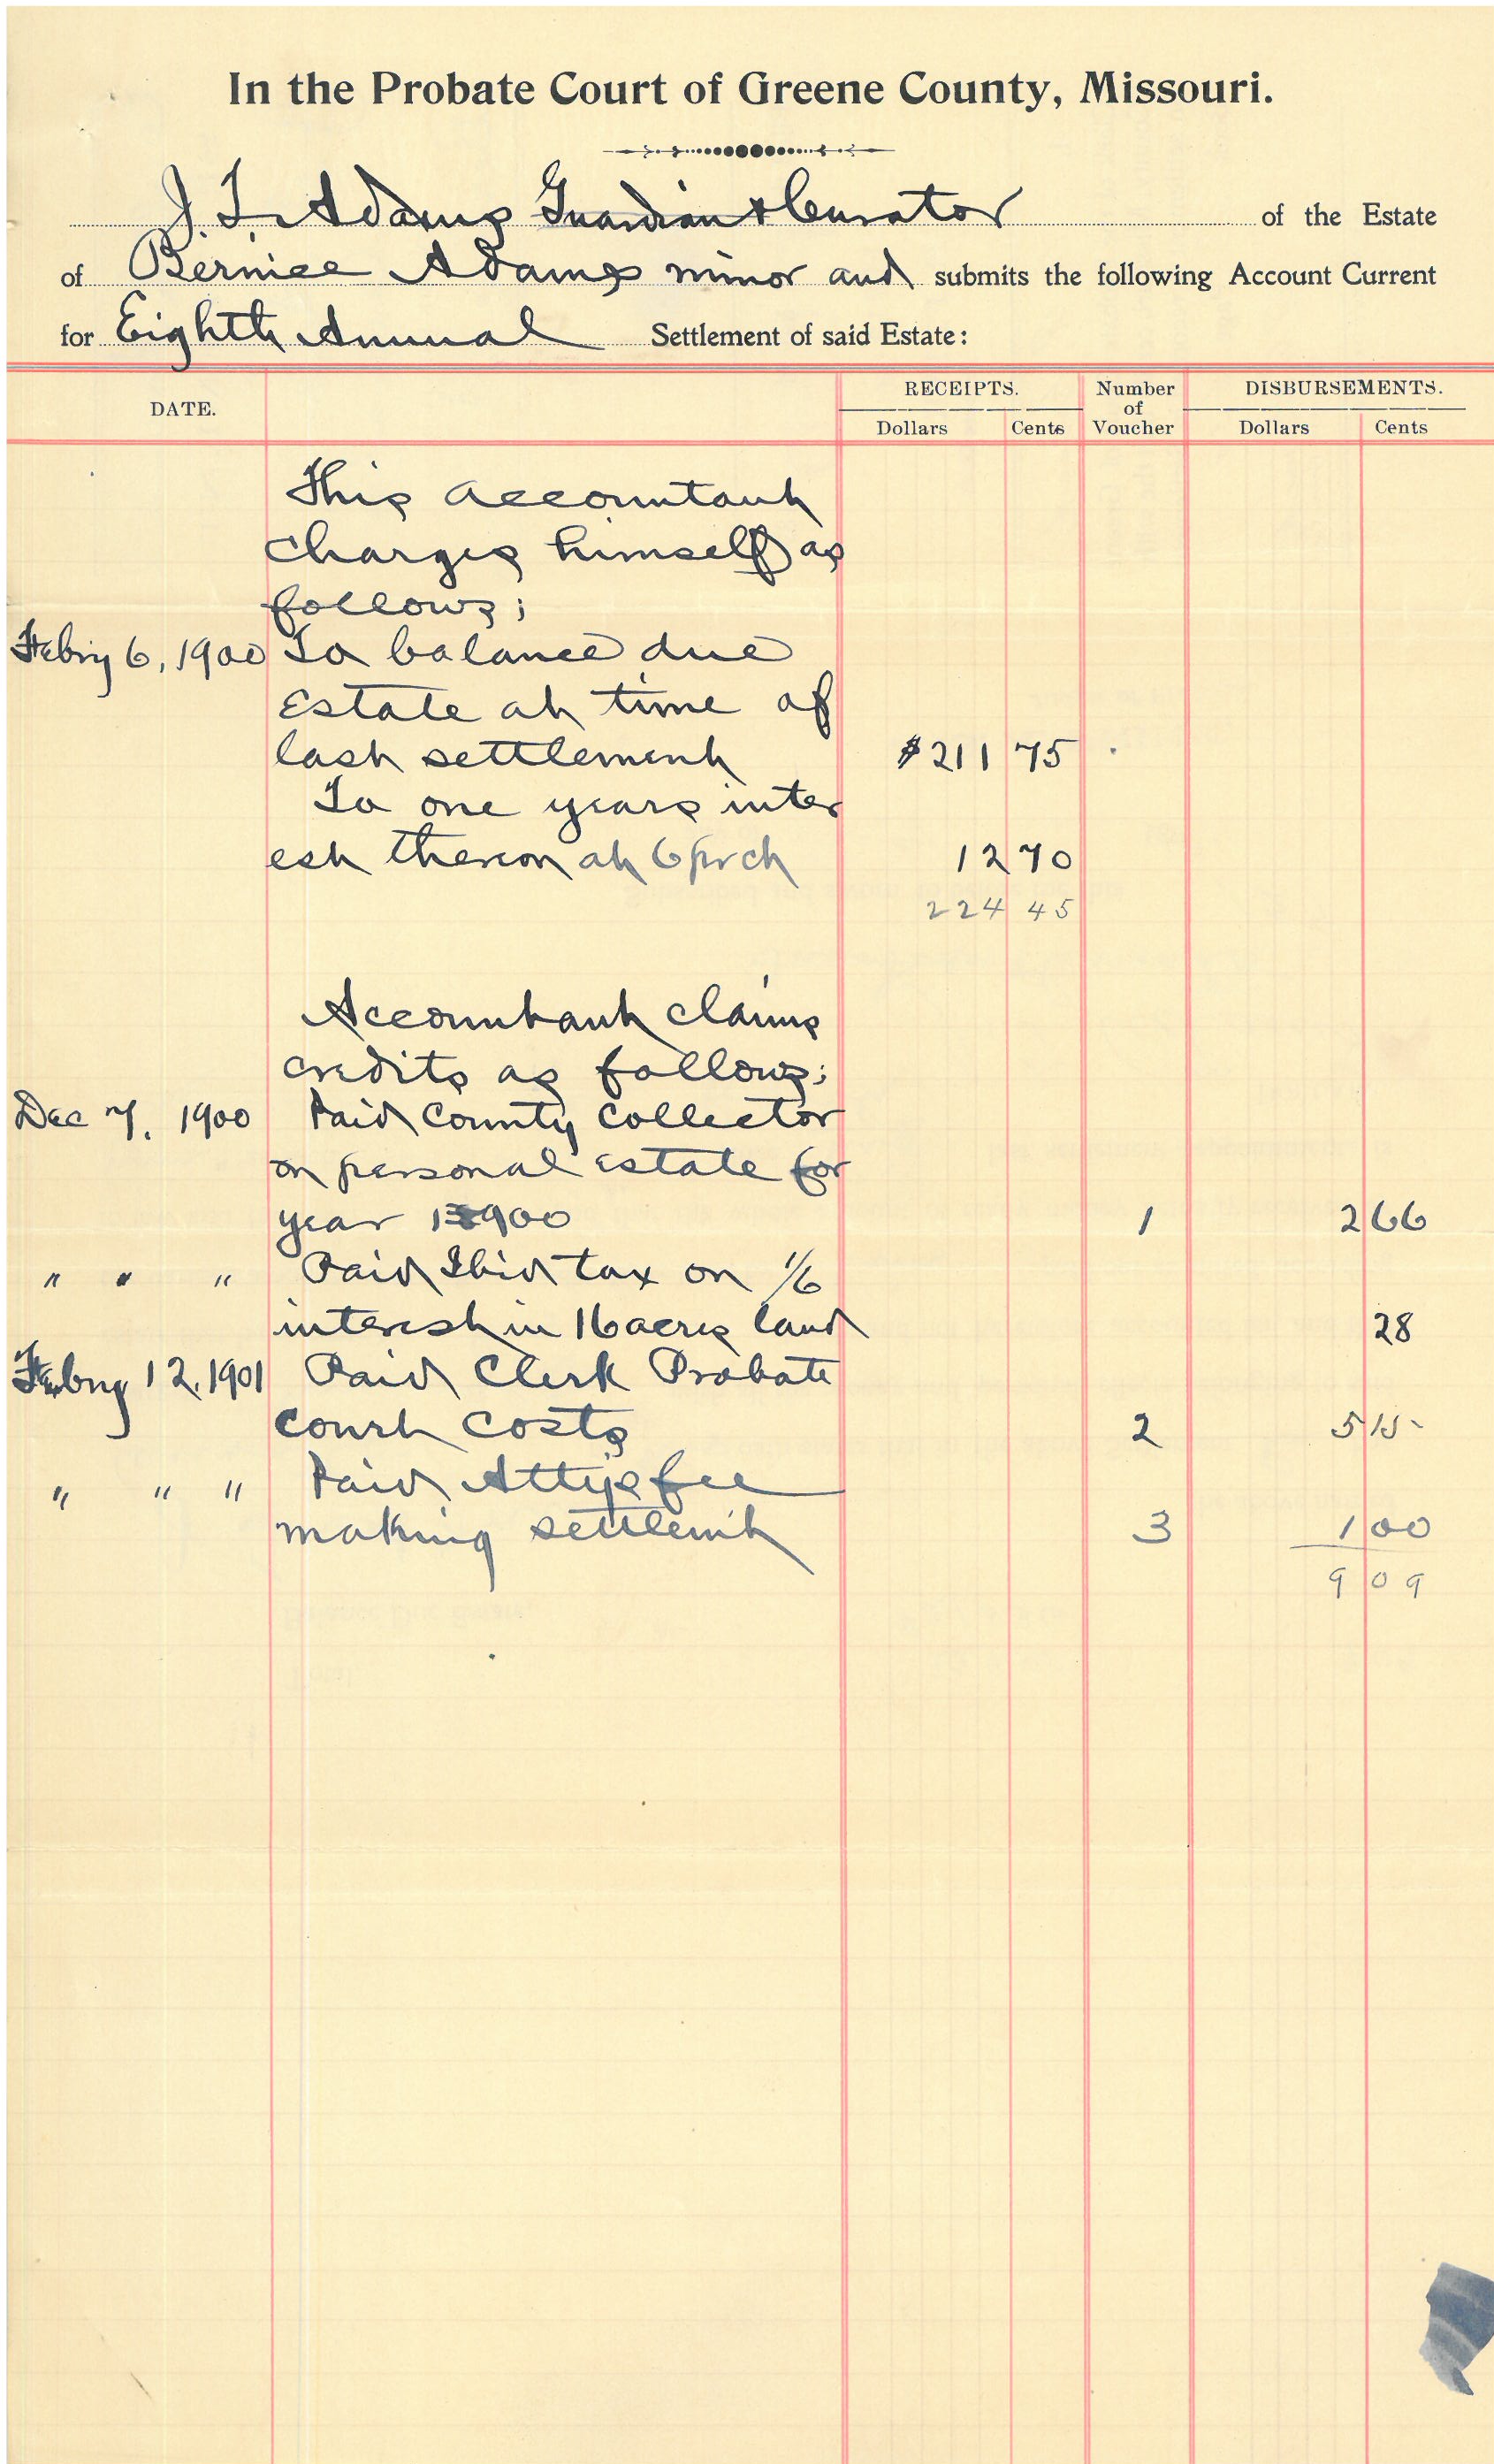 In the Probate Court of Greene County, Missouri.
J. T. Adams Guardian & Curator of the Estate
of Bernice Adams minor and submits the following Account Current
for Eighth Annual Settlement of said Estate:
DATE. RECEIPTS. Number of Voucher DISBURSEMENTS.
Dollars Cents Dollars Cents
This accountant
charges himself as
follows;
Febry 6, 1900 To balance due
Estate at time of
last settlement $211 75
To one years inter
est thereon at 6 prct 12 70
224 45
Accountant claims
credits as follows;
Dec 7, 1900 Paid County Collector
on personal estate for
year 1900 1 2 66
" " " Paid tax on 1/6
interest in 16 acres land 28
Febry 12, 1901 Paid Clerk Probate
court costs 2 5 15
" " " Paid Attys fee
making settlemt 3 1 00
9 09